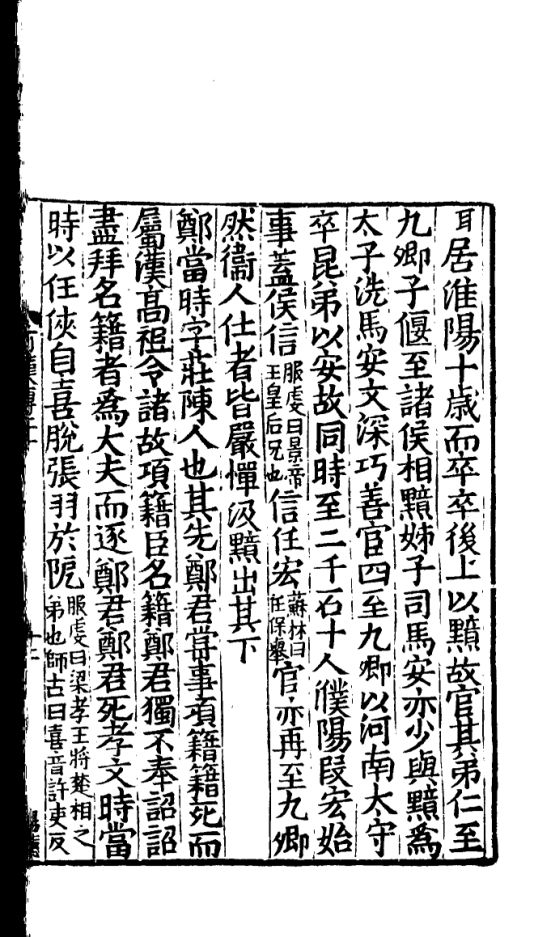 耳居淮陽十歲而卒卒後上以黯故官其弟仁至
九卿子偃至諸侯相黯姊子司馬安亦少與黯爲
太子洗馬安文深巧善官四至九卿以河南太守
卒昆弟以安故同時至二千石十人濮陽段宏始
事蓋侯信服虔曰景帝王皇后兄也信任宏蘇林曰任保舉官亦再至九卿
然衞人仕者皆嚴憚汲黯出其下
鄭當時字莊陳人也其先鄭君甞事項籍籍死而
屬漢高祖令諸故項籍臣名籍鄭君獨不奉詔詔
盡拜名籍者爲大夫而逐鄭君鄭君死孝文時當
時以任俠自喜脫張羽於阸服虔曰梁孝王將楚相之弟也師古曰喜音許吏反